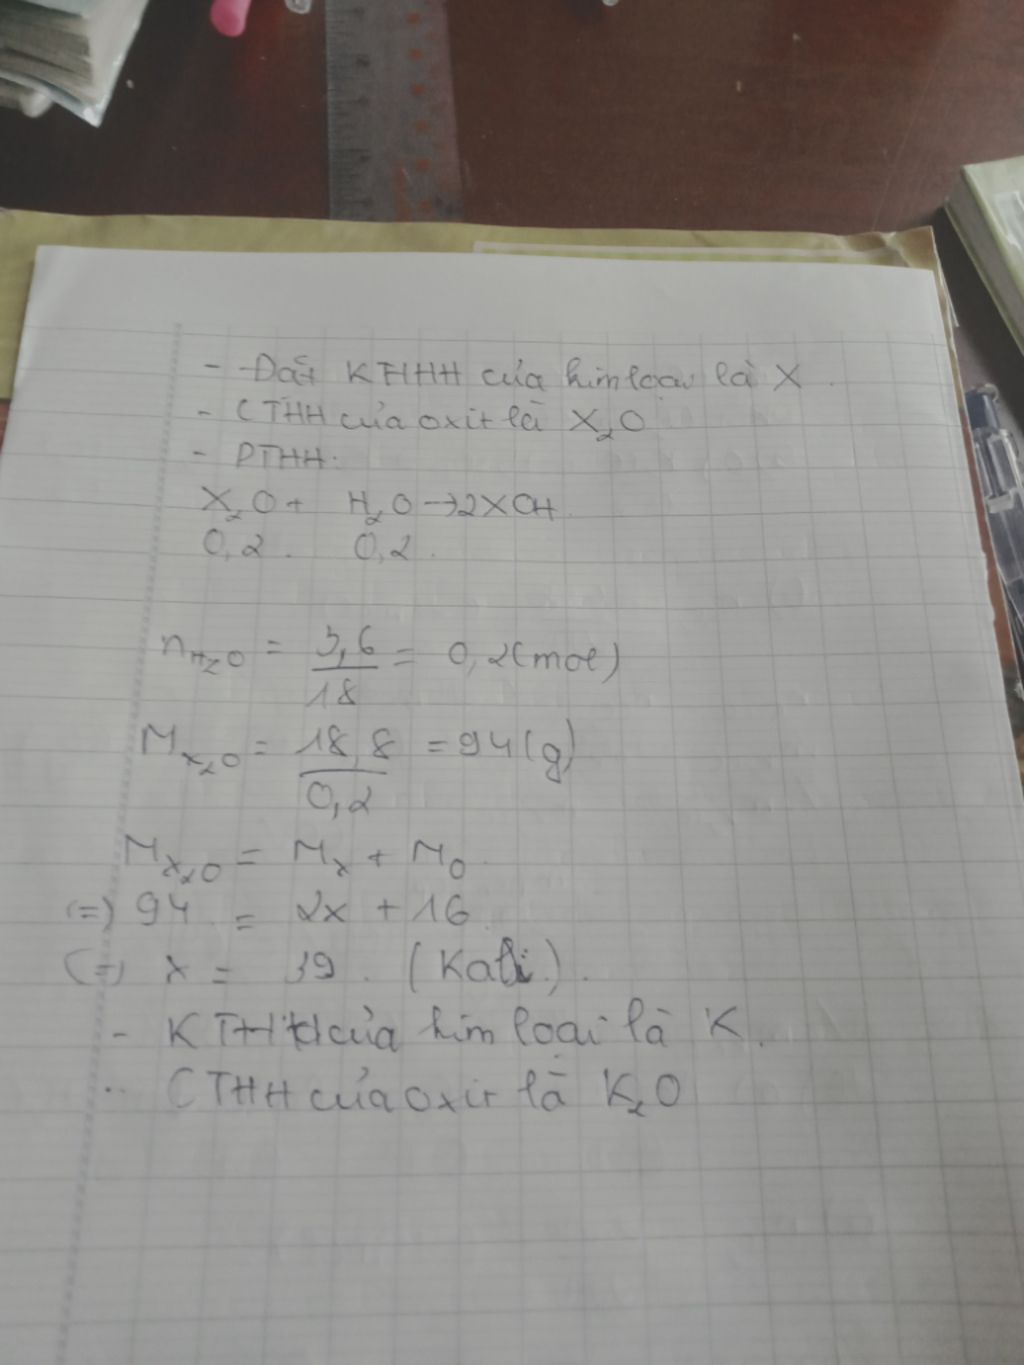 - Đặt KHHH của kim loại là X.
- CTHH của oxit là X₂O
- PTHH:
X₂O + H₂O → 2XOH
0,2. 0,2.
nH₂O = 3,6/18 = 0,2 (mol)
Mx₂O = 18,8/0,2 = 94 (g)
Mx₂O = Mx + MO
(=) 94 = 2x + 16
(=) x = 39. (Kali).
- KTHH của kim loại là K.
- CTHH của oxit là K₂O